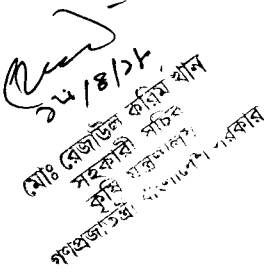 ২৮/৪/২৮
মোঃ রেজাউল করিম খান
সহকারী সচিব
কৃষি মন্ত্রণালয়
গণপ্রজাতন্ত্রী বাংলাদেশ সরকার